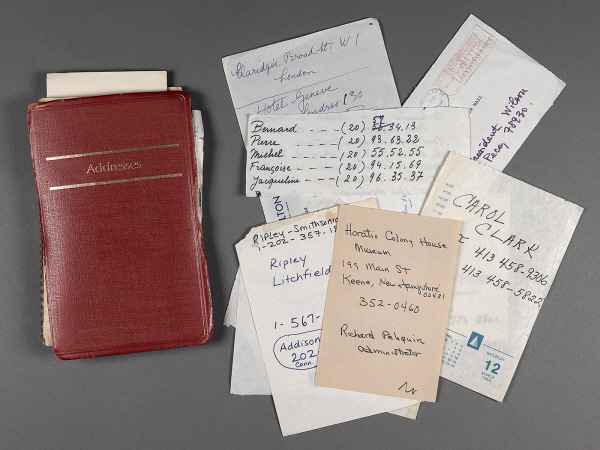 Addresses
Claridge's, Broad St. W1
London
Hotel Geneve
Londres 130
Bernard - - - (20) 34.13
Pierre - - - (20) 93.63.22
Michel - - - (20) 55.52.55
Françoise - - - (20) 94.15.69
Jacqueline - - - (20) 96.35.37
Wilson
78230.
Ripley-Smithsonian
1-202-357-
Ripley
Litchfield
1-567-
Addison
202
Conn.
Horatio Colony House
Museum
199 Main ST
Keene, New Hampshire
03431
352-0460
Richard
administrator
CAROL
CLARK
413 458-9306
413 458-5822
SATURDAY
12
MARCH